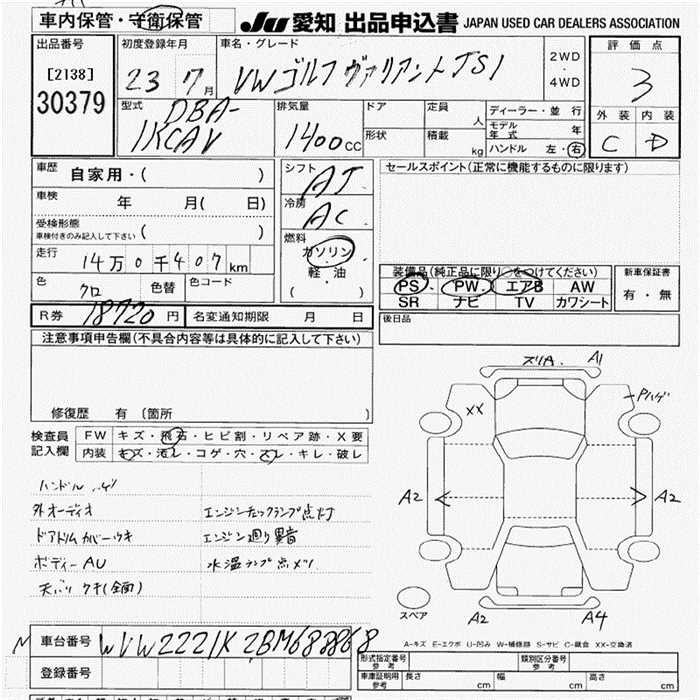 車内保管・守衛保管
JU 愛知 出品申込書 JAPAN USED CAR DEALERS ASSOCIATION
出品番号
[2138]
30379
初度登録年月
23 7月
車名・グレード
VWゴルフ ヴァリアントTSI
2WD
・
4WD
評価点
3
外装 内装
C D
型式
DBA-
1KCAV
排気量
1400cc
ドア
形状
定員
人
積載
kg
ディーラー・並行
モデル年式 年
ハンドル 左・右
車歴
自家用・( )
車検
年 月( 日)
受検形態
車検付きのみ記入して下さい ( )
走行
14万0千407km
色
クロ
色替
色コード
シフト
AT
冷房
AC
燃料
ガソリン
・
軽・油
( )
セールスポイント(正常に機能するものに限ります)
装備品(純正品に限り○をつけてください)
PS PW エアB AW
SR ナビ TV カワシート
新車保証書
有・無
R券 18720円
名変通知期限 月 日
後日品
注意事項申告欄(不具合内容等は具体的に記入して下さい)
修復歴 有 〔箇所 〕
検査員
記入欄
FW キズ・飛石・ヒビ割・リペア跡・X要
内装 キズ・汚レ・コゲ・穴・スレ・キレ・破レ
ハンドル ハゲ
外オーディオ
ドアトリムカバーウキ
ボディーAU
天バリ ウキ(全面)
エンジンチェックランプ点灯
エンジン廻り異音
水温ランプ点メツ
ズリA. A1
XX
Pハゲ
A2
A2
スペア
A2
A4
A-キズ E-エクボ U-凹み W-補修跡 S-サビ C-腐食 XX-交換済
車台番号 WVWZZZ1KZBM688868
登録番号
形式指定番号
参考
類別区分番号
参考
車庫証明用
参考
長さ cm 幅 cm 高さ cm